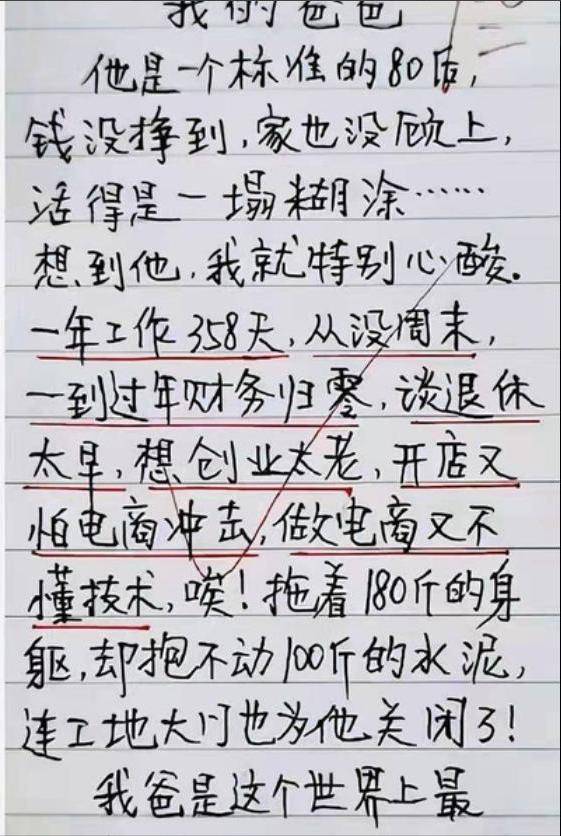 我的爸爸
他是一个标准的80后，
钱没挣到，家也没顾上，
活得是一塌糊涂……
想到他，我就特别心酸。
一年工作358天，从没周末，
一到过年财务归零，谈退休
太早，想创业太老，开店又
怕电商冲击，做电商又不
懂技术，唉！拖着180斤的身
躯，却抱不动100斤的水泥，
连工地大门也为他关闭了！
我爸是这个世界上最